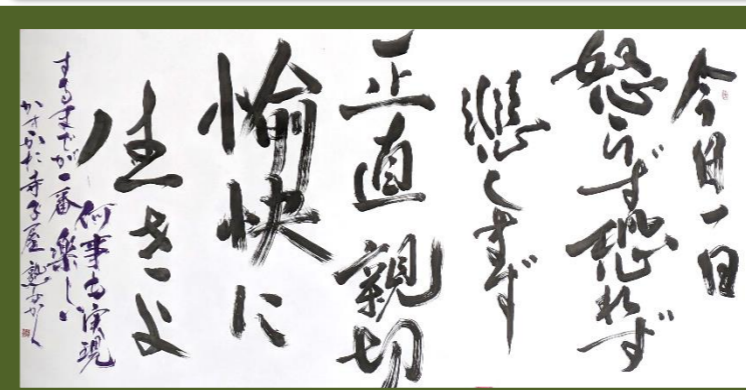 今日一日
怒らず恐れず
悲しまず
正直親切
愉快に
生きよ
何事も実現
するまでが一番楽しい
寺子屋